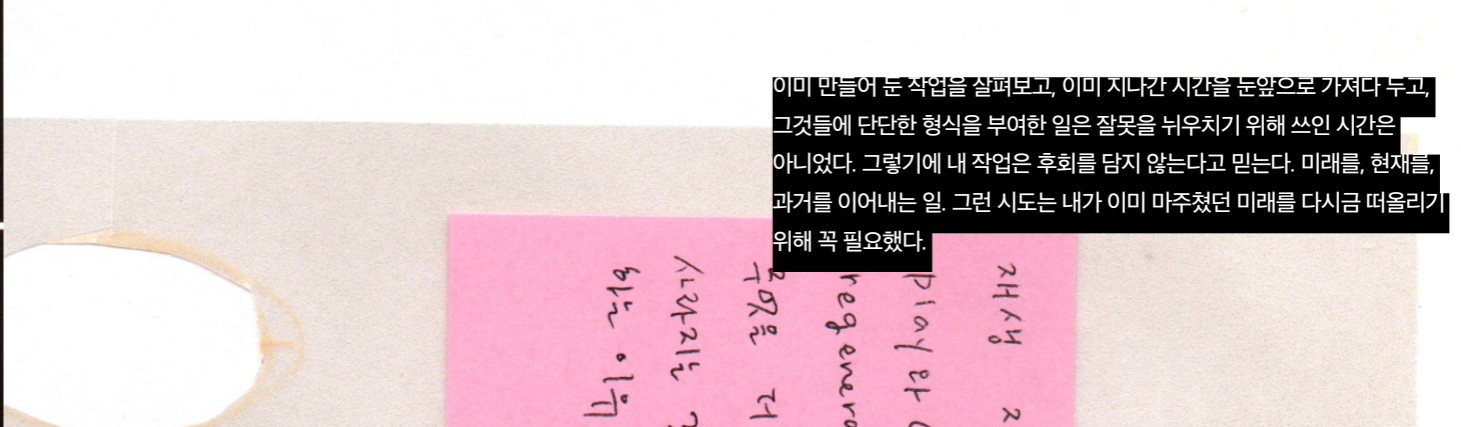 이미 만들어 둔 작업을 살펴보고, 이미 지나간 시간을 눈앞으로 가져다 두고,
그것들에 단단한 형식을 부여한 일은 잘못을 뉘우치기 위해 쓰인 시간은
아니었다. 그렇기에 내 작업은 후회를 담지 않는다고 믿는다. 미래를, 현재를,
과거를 이어내는 일. 그런 시도는 내가 이미 마주쳤던 미래를 다시금 떠올리기
위해 꼭 필요했다.
재생
play와
사라지는
하는 이유